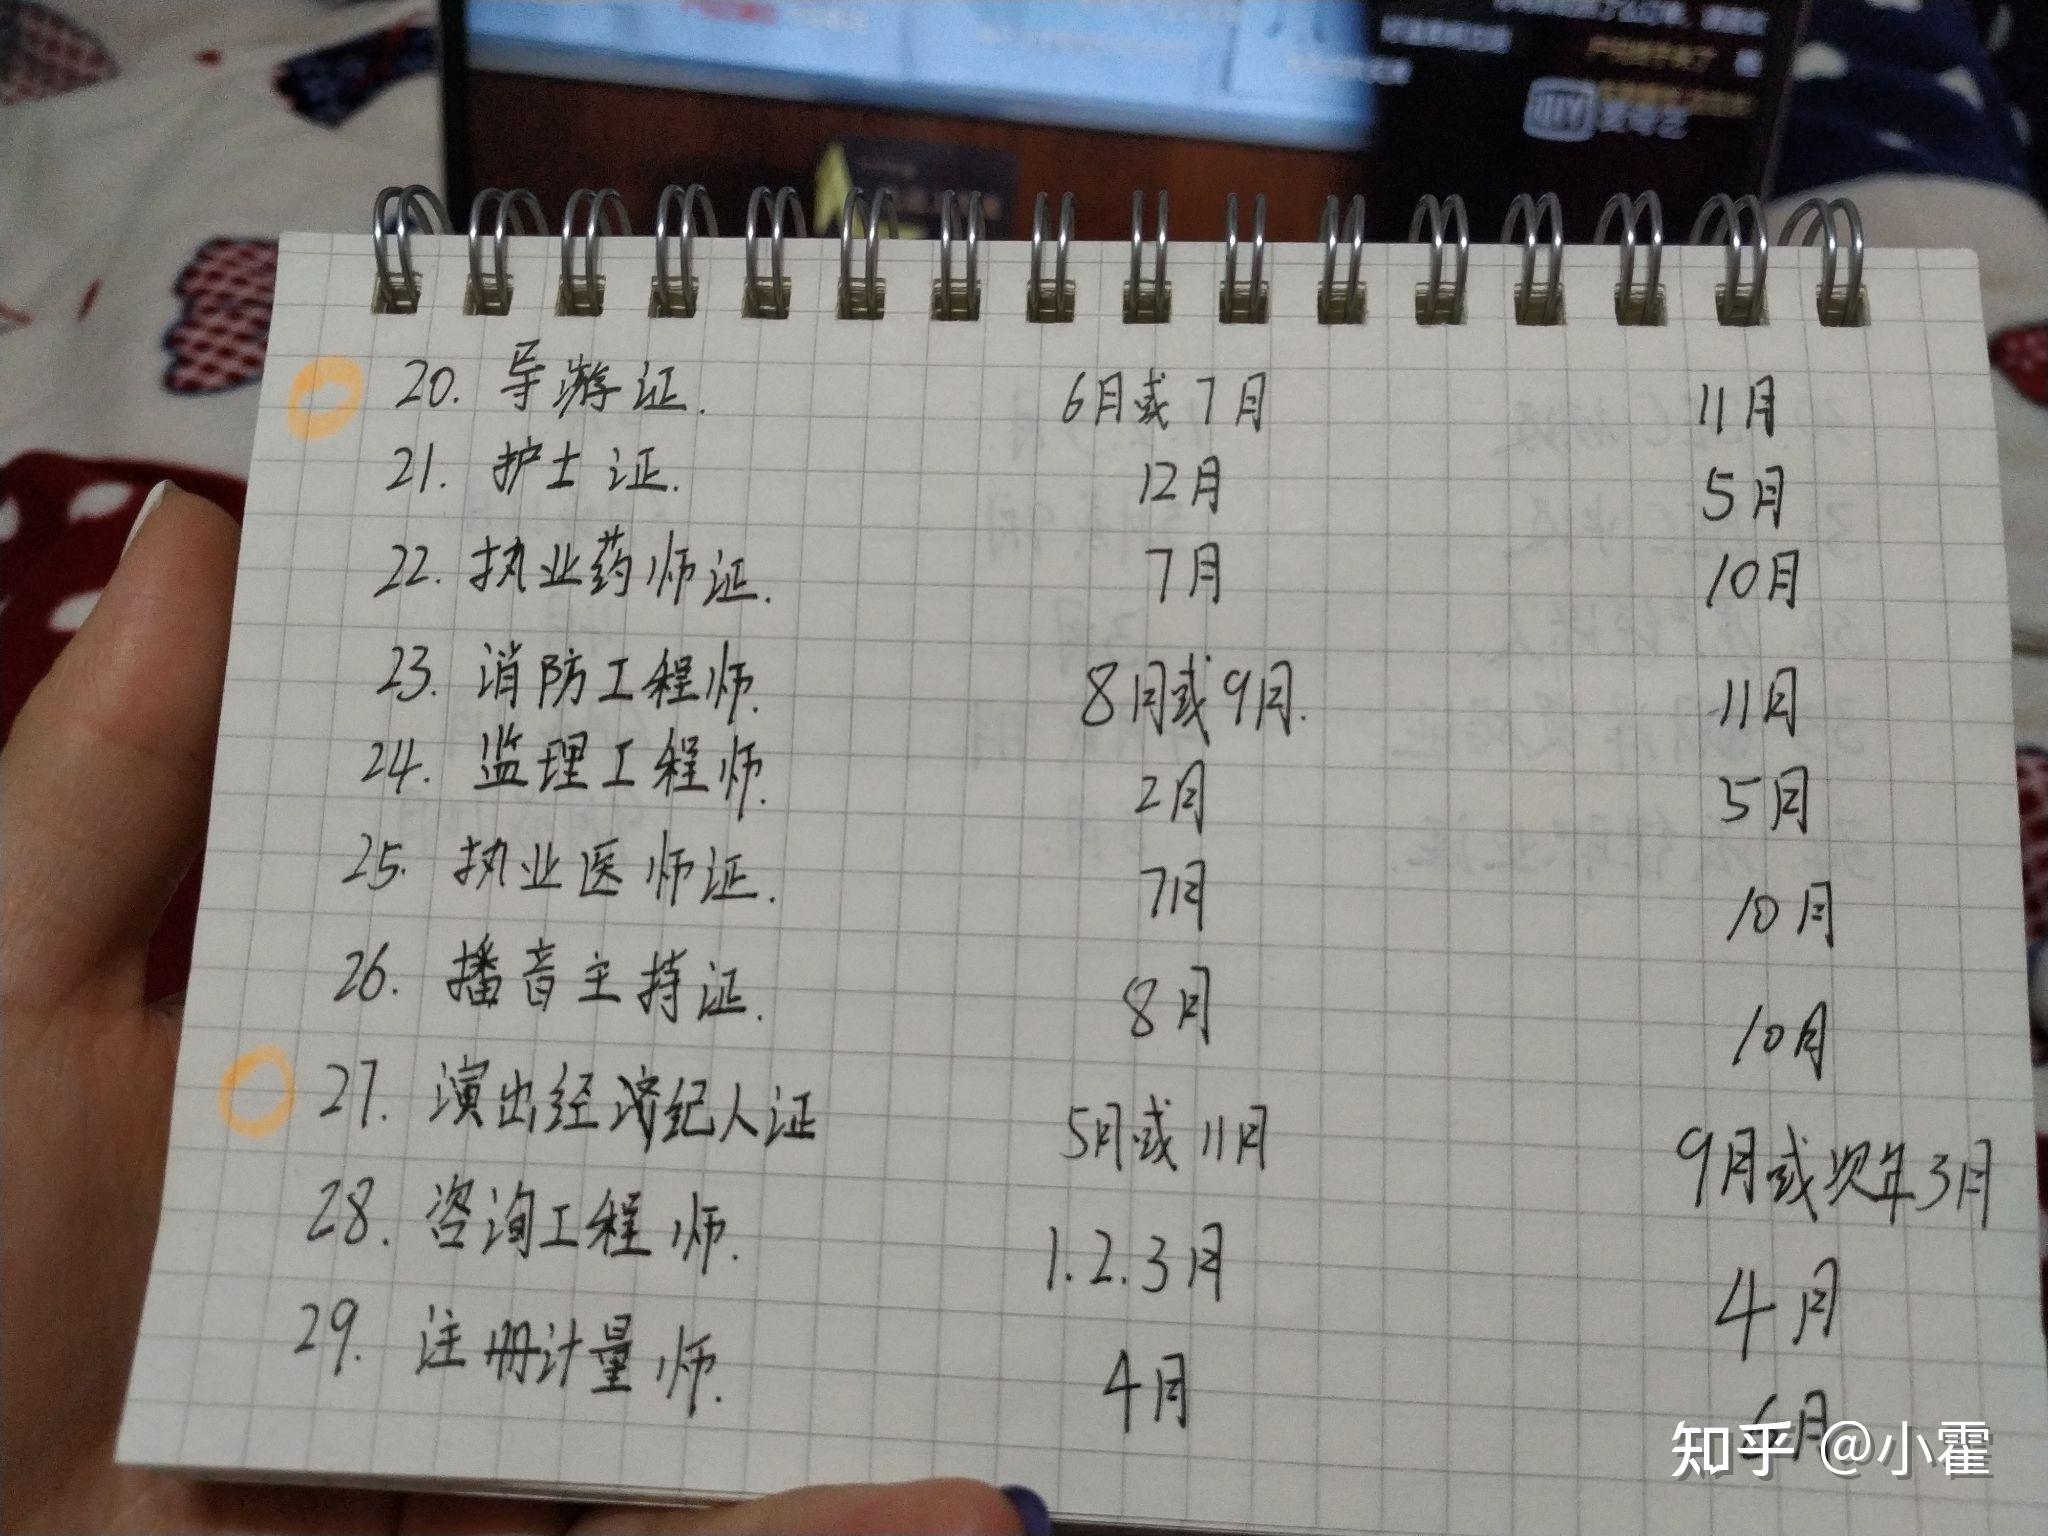 爱奇艺
20. 导游证. 6月或7月 11月
21. 护士证. 12月 5月
22. 执业药师证. 7月 10月
23. 消防工程师. 8月或9月. 11月
24. 监理工程师. 2月 5月
25. 执业医师证. 7月 10月
26. 播音主持证. 8月 10月
27. 演出经济纪人证 5月或11月 9月或次年3月
28. 咨询工程师. 1.2.3月 4月
29. 注册计量师. 4月 6月
知乎 @小霍